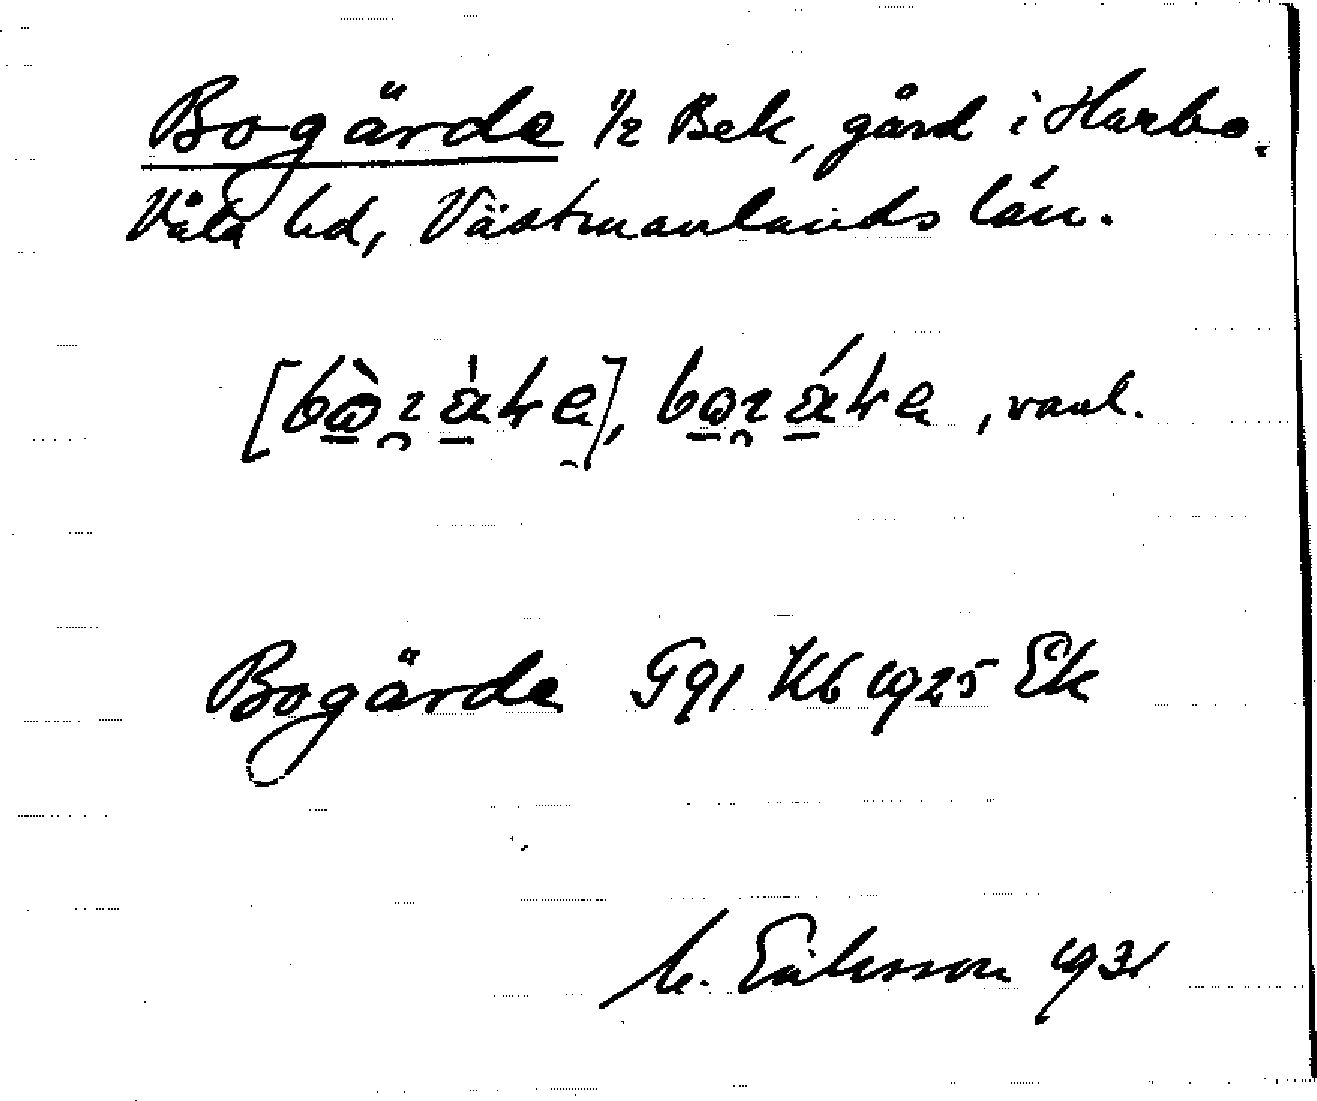 Bogärde 1/2 Bek, gård i Harbo.
Våla hd, Västmanlands län.
, vanl.
Bogärde G91 Kb 1925 Ek
M. Eriksson 1931